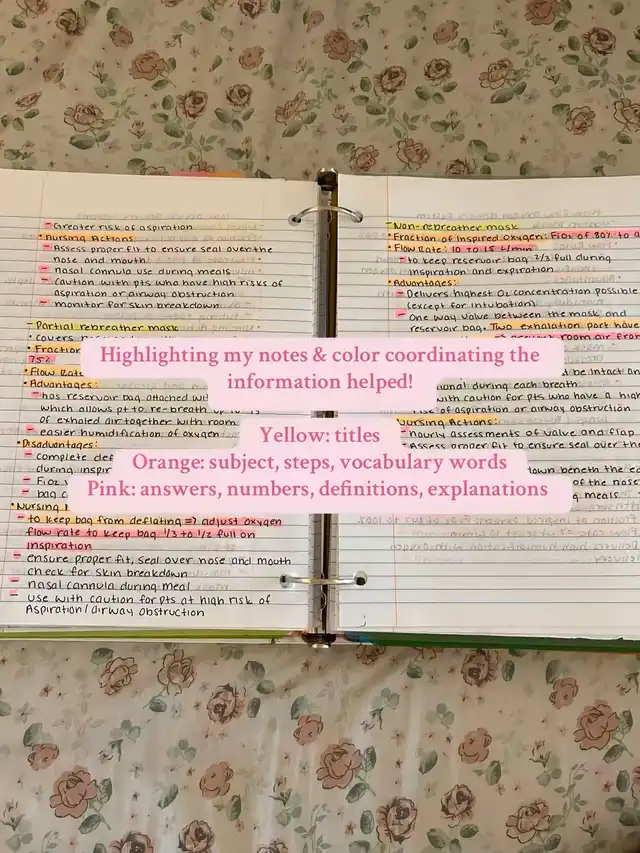 Greater risk of aspiration
• Nursing Actions
- Assess proper fit to ensure seal over the
nose and mouth
- nasal cannula use during meals
- caution with pts who have high risks of
aspiration or airway obstruction
- monitor for skin breakdown
- Partial rebreather mask
• covers
• Fraction
75%
• Flow Rat
• Advantages:
- has reservoir bag attached wi
which allows pt to re-breath up to 1/3
of exhaled air together with room
- easier humidification of oxygen
• Disadvantages:
- complete def
during inspir
- Fio2
- bag c
• Nursing
- to keep bag from deflating => adjust oxygen
flow rate to keep bag 1/3 to 1/2 full on
inspiration
- ensure proper fit, seal over nose and mouth
check for skin breakdown
- nasal cannula during meal
- use with caution for pts at high risk of
Aspiration/airway obstruction
- Non-rebreather mask
• Fraction of Inspired Oxygen: Fio2 of 80% to
• Flow Rate: 10 to 15 L/min
- to keep reservoir bag 2/3 full during
inspiration and expiration
• Advantages:
- Delivers highest O2 concentration possible
(except for intubation)
- One way valve between the mask and
reservoir bag. Two exhalation port have
room air from
d be intact an
onal during each breath
with caution for pts who have a high
risk of aspiration or airway obstruction
Nursing Actions:
- hourly assessments of valve and flap
Assess proper fit to ensure seal over th
down beneth the e
of the nose
meals
Highlighting my notes & color coordinating the
information helped!
Yellow: titles
Orange: subject, steps, vocabulary words
Pink: answers, numbers, definitions, explanations